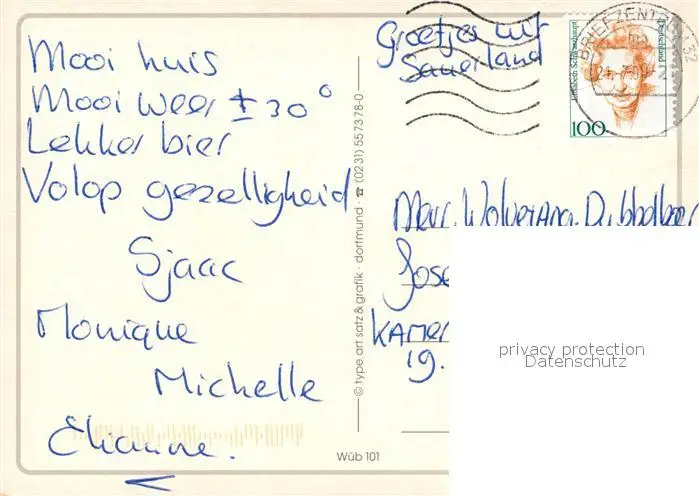 Mooi huis
Mooi weer ± 30°
Lekker bier
Volop gezelligheid
Sjaac
Monique
Michelle
Elianne.
© type art satz & grafik · dortmund · ☎ (0231) 557378-0
Wüb 101
Groetjes uit
Sauerland
BRIEFZENTRUM
Deutschland
100
José
Kamer
19.
privacy protection
Datenschutz